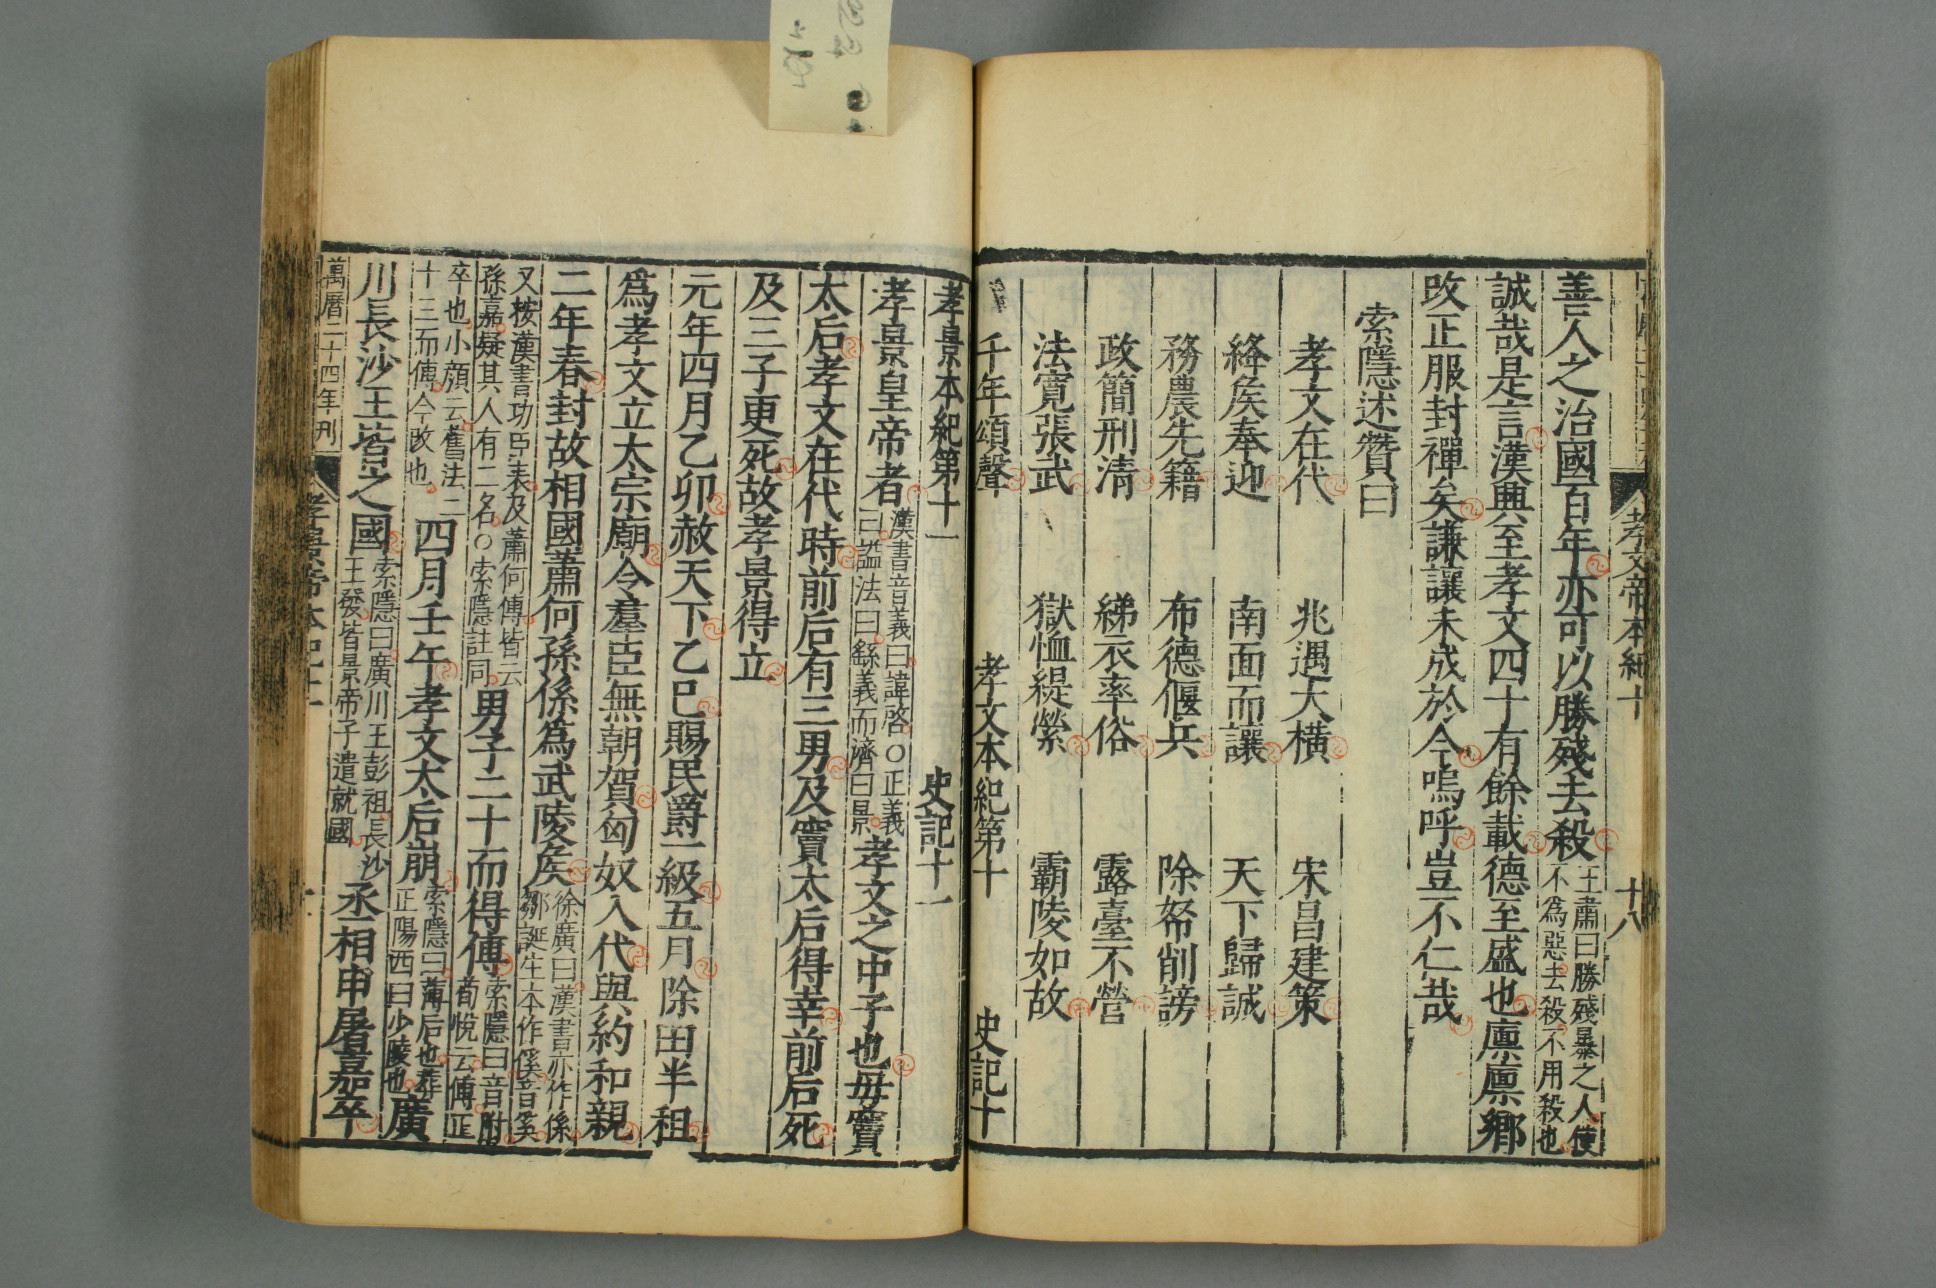 孝文帝本紀十
十八
善人之治國百年亦可以勝殘去殺王肅曰勝殘暴之人使
不為惡去殺不用殺也
誠哉是言漢興至孝文四十有餘載德至盛也廩廩鄉
改正服封禪矣謙讓未成於今嗚呼豈不仁哉
索隱述贊曰
孝文在代 兆遇大橫 宋昌建策
絳侯奉迎 南面而讓 天下歸誠
務農先籍 布德偃兵 除帑削謗
政簡刑清 綈衣率俗 露臺不營
法寬張武 獄恤緹縈 霸陵如故
千年頌聲
孝文本紀第十 史記十
孝景本紀第十一 史記十一
孝景皇帝者漢書音義曰諱啓○正義
曰謚法曰繇義而濟曰景孝文之中子也毋竇
太后孝文在代時前后有三男及竇太后得幸前后死
及三子更死故孝景得立
元年四月乙卯赦天下乙巳賜民爵一級五月除田半租
為孝文立太宗廟令羣臣無朝賀匈奴入代與約和親
二年春封故相國蕭何孫係為武陵侯徐廣曰漢書亦作係
鄒誕生本作傒音奚
又按漢書功臣表及蕭何傳皆云
孫嘉疑其人有二名○索隱註同男子二十而得傅索隱曰音附
荀悅云傅正
卒也小顏云舊法二
十三而傅今改也四月壬午孝文太后崩索隱曰薄后也葬
正陽西曰少陵也廣
川長沙王皆之國索隱曰廣川王彭祖長沙
王發皆景帝子遣就國丞相申屠嘉卒
萬曆二十四年刊
孝景帝本紀十一